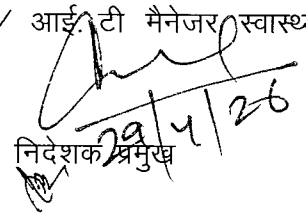 आई. टी मैनेजर स्वास्थ
29/4/26
निदेशक प्रमुख